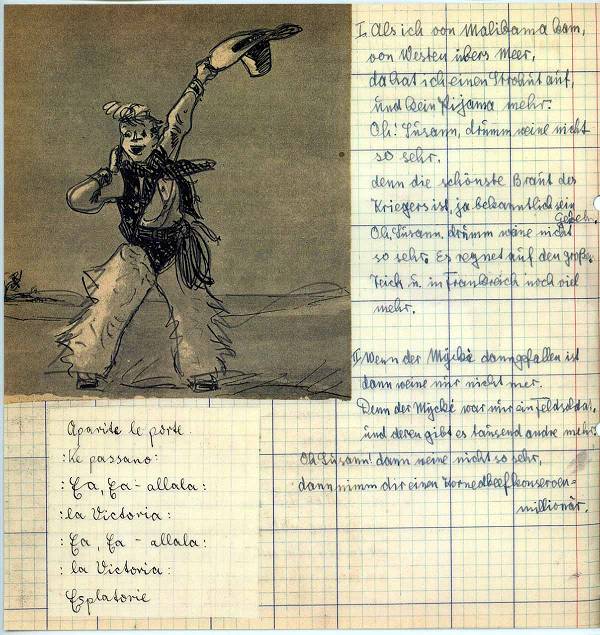 I. Als ich von Malibama kam,
von Westen übers Meer,
da hat ich einen Strohut auf,
und kein Pijama mehr.
Oh! Susann, drumm weine nicht
so sehr,
denn die schönste Braut des
Kriegers ist, ja bekanntlich sein
Gewehr.
Oh, Susann, drumm weine nicht
so sehr. Es regnet auf den großen
Teich u. in Frankreich noch viel
mehr.
II. Wenn der Mÿcké dann gefallen ist
dann weine mir nicht mer.
Denn der Mÿcké war nur ein Feldsoldat,
und deren gibt es tausend andre mehr.
Oh Susann! dann weine nicht so sehr,
dann nimm dir einen Kornedbeefkonserven-
millionär.
Aparite le porte.
:ke passano:
:Ea, Ea-allala:
:la Victoria:
:Ea, Ea - allala:
: la Victoria:
Esplatorie